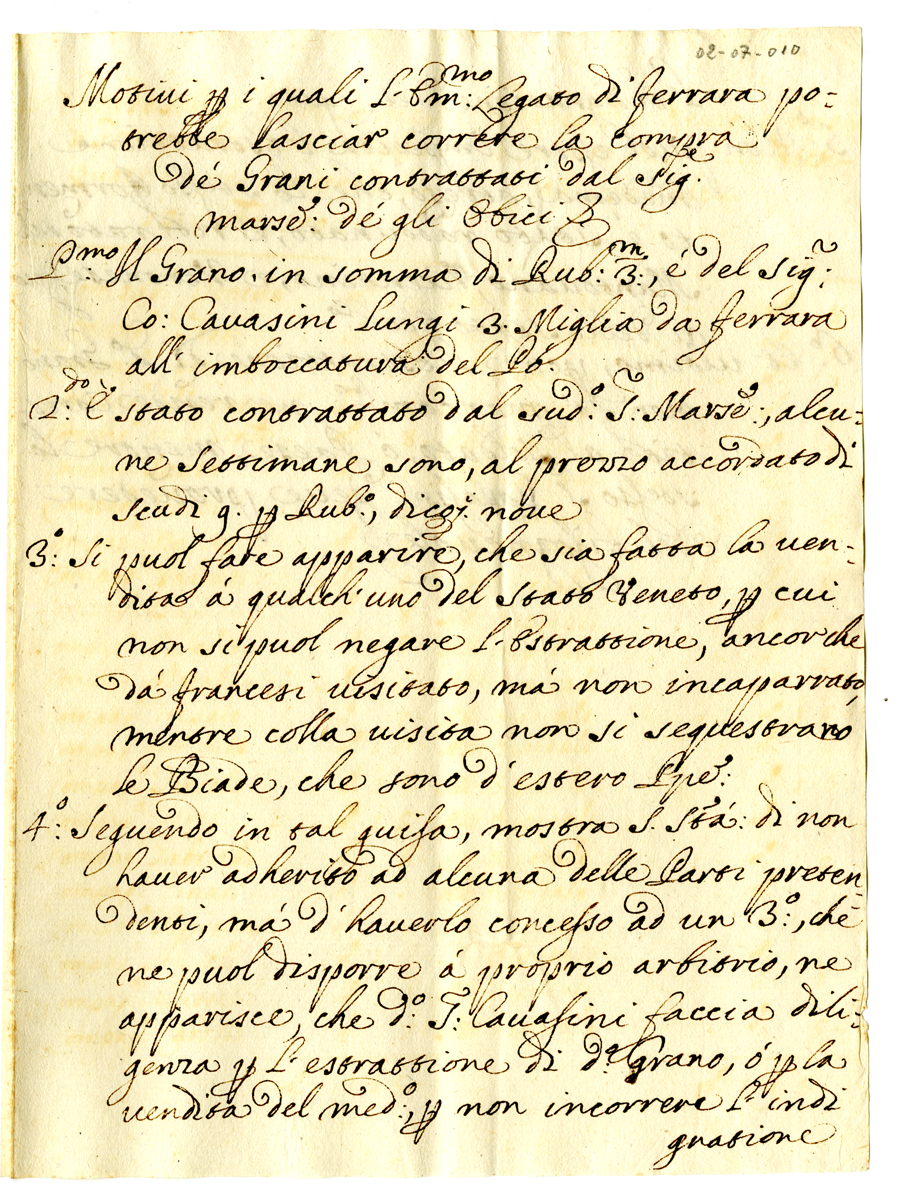 02-07-010
Motivi p i quali l'Em:mo Legato di Ferrara po-
trebbe lasciar correre la compra
dé Grani contrattati dal Sig.re
Marse: dé gli Obici
Pmo: Il Grano, in somma di Rub: m/3:, é del Sigr:
Co: Cavasini lungi 3. Miglia da Ferrara
all' imboccatura del Pó.
2:do É stato contrattato dal sudo: S: Marse:, alcu-
ne settimane sono, al prezzo accordato di
scudi 9. p Rubo:, dico: nove
3o: Si puol fare apparire, che sia fatta la ven-
dita á qualch'uno del Stato Veneto, p cui
non si puol negare l'Estrattione, ancorche
dá Francesi visitato, má non incaparrato,
mentre colla visita non si sequestranó
le Biade, che sono d'estero Ppe:
4o: Seguendo in tal guisa, mostra S. Stá: di non
haver adherito ad alcuna delle Parti preten-
denti, má d'haverlo concesso ad un 3o:, che
ne puol disporre á proprio arbitrio, ne
apparisce, che do: S: Cavasini faccia dili-
genza p l'estrattione di do: Grano, ó p la
vendita del medo:, p non incorrere l'indi
gnatione